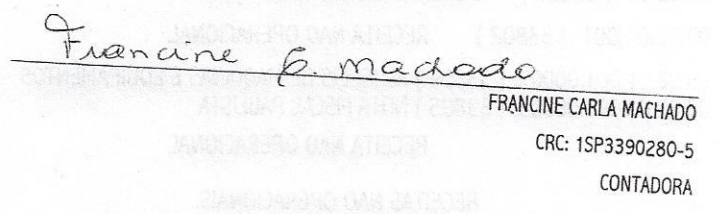 Francine C. Machado
FRANCINE CARLA MACHADO
CRC: 1SP3390280-5
CONTADORA